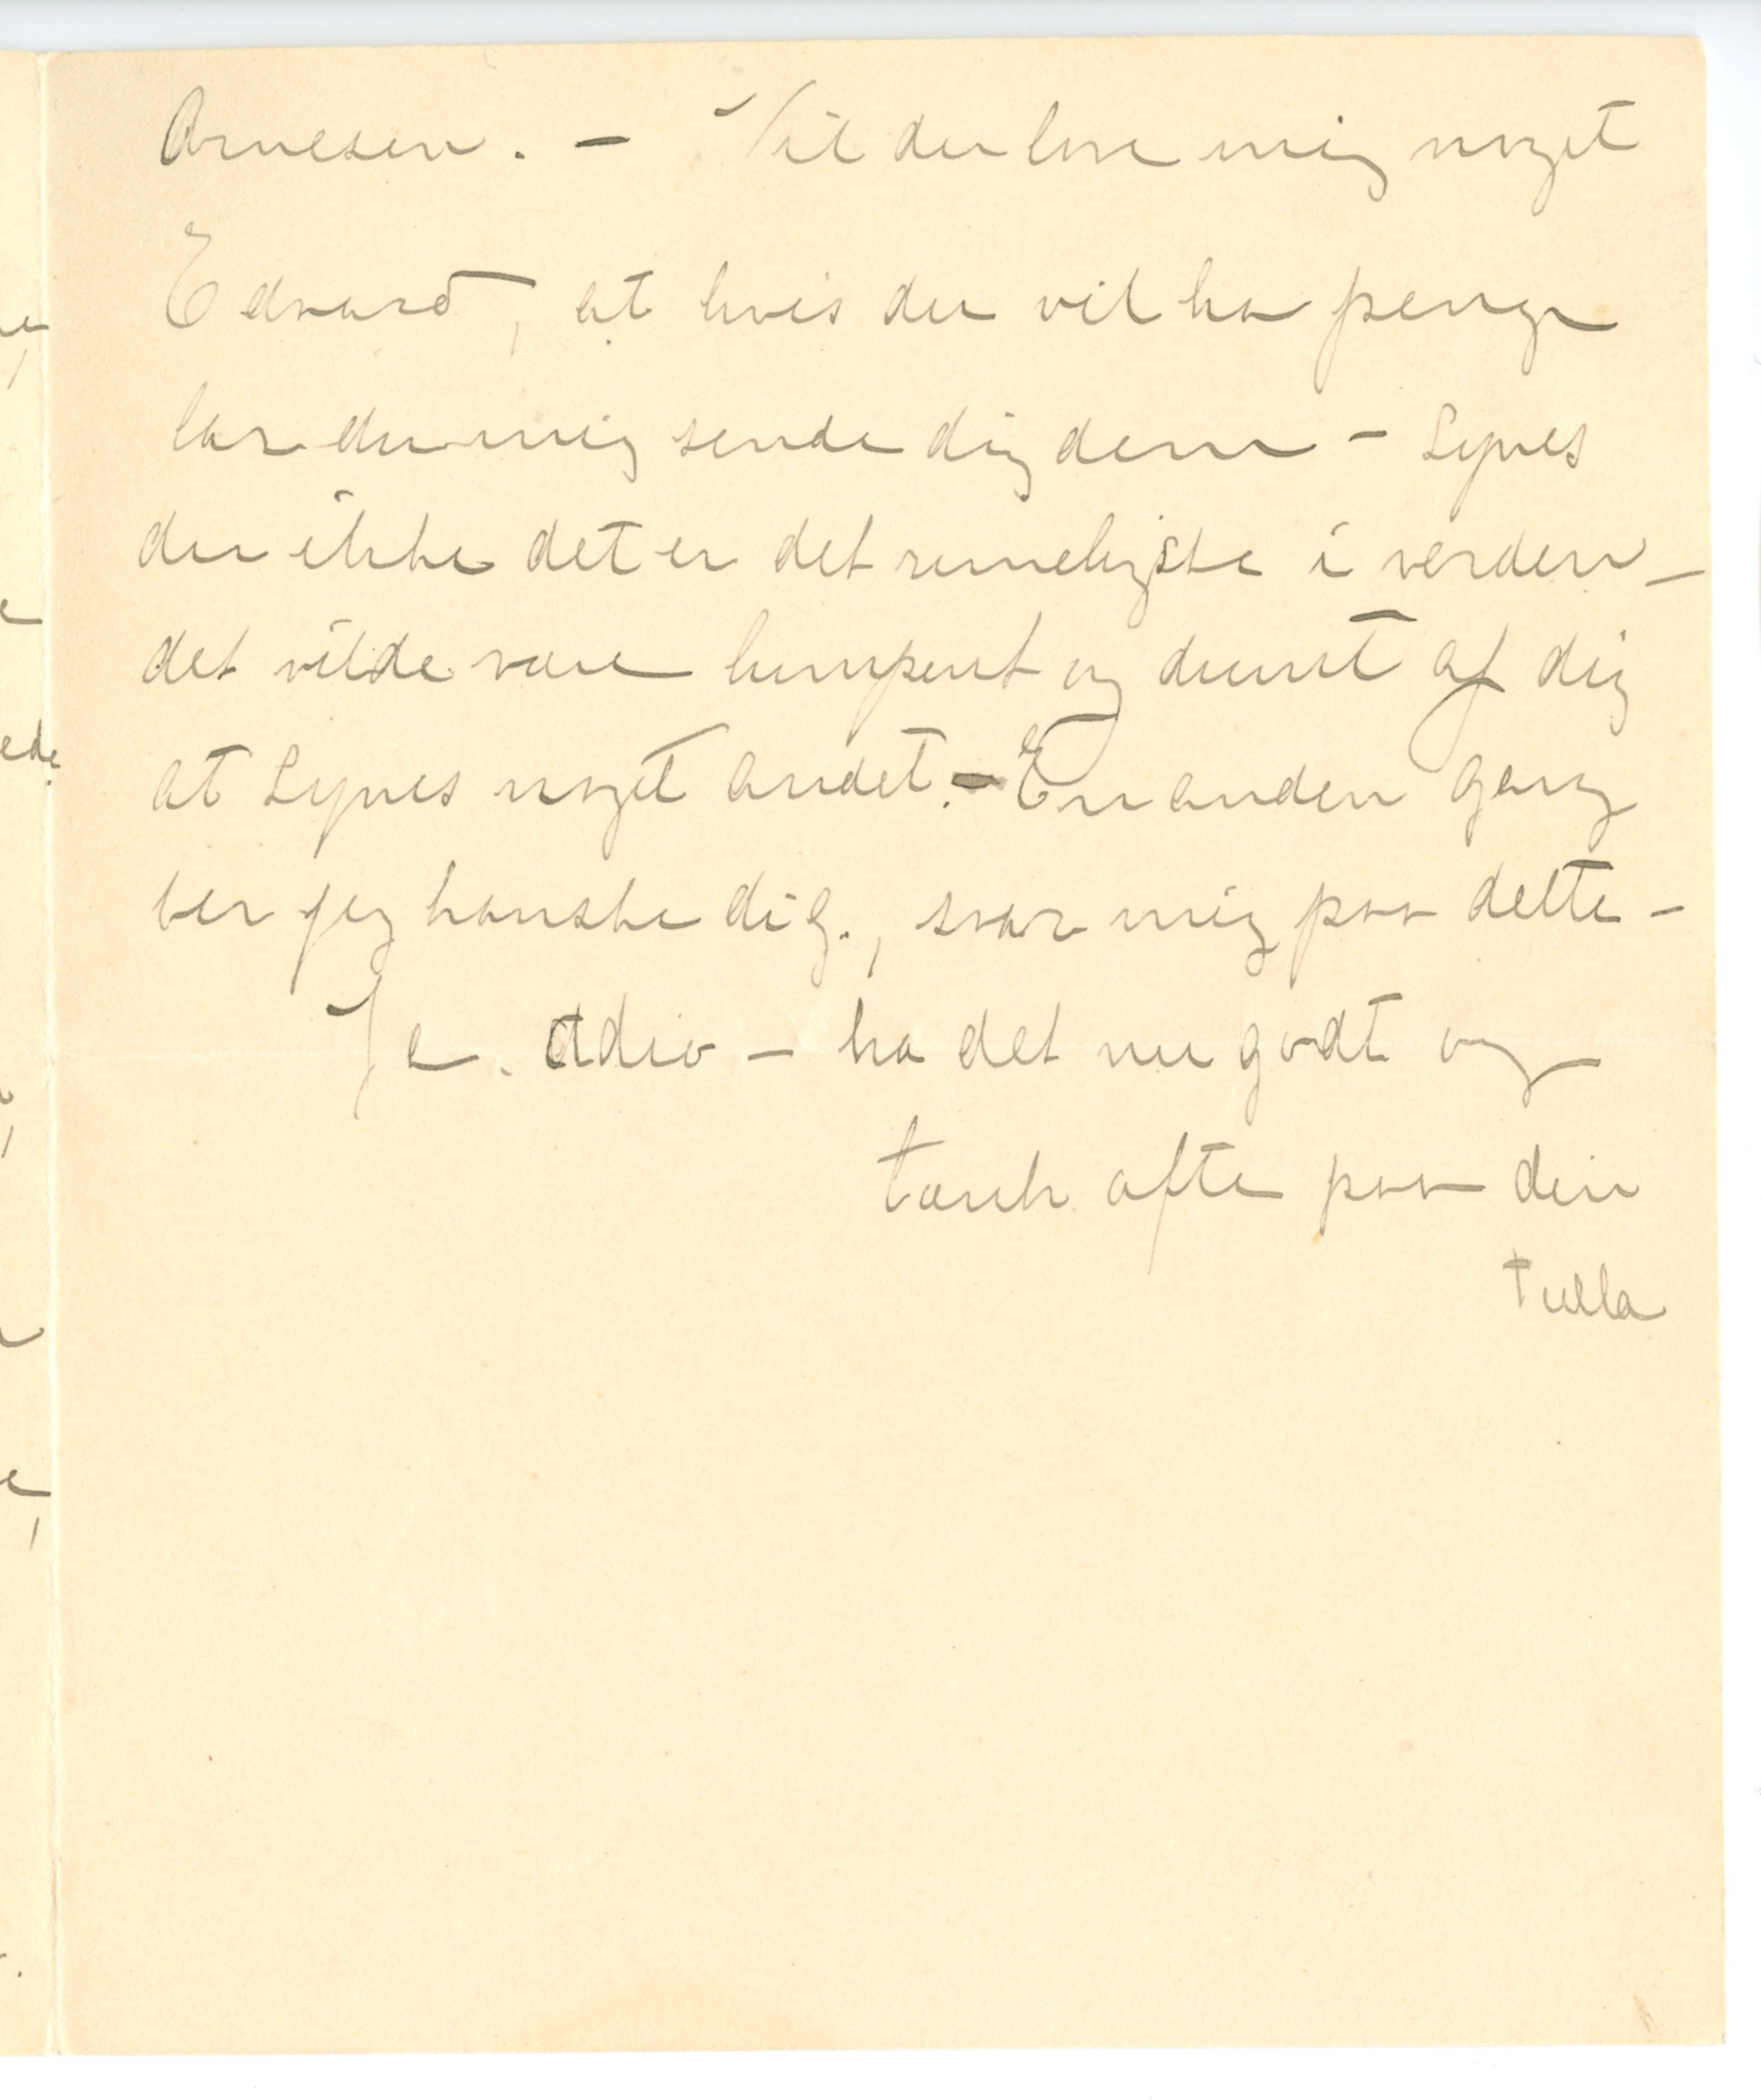 Arnesen. – Vil du love mig noget
Edvard, at hvis du vil ha penge
lar du mig sende dig dem – Synes
du ikke det er det rimeligste i verden –
det vilde være lumpent og dumt af dig
at synes noget andet. – En anden gang
ber jeg kanske dig., svar mig paa dette –
Ja. adio – ha det nu godt og
tænk ofte paa din
Tulla